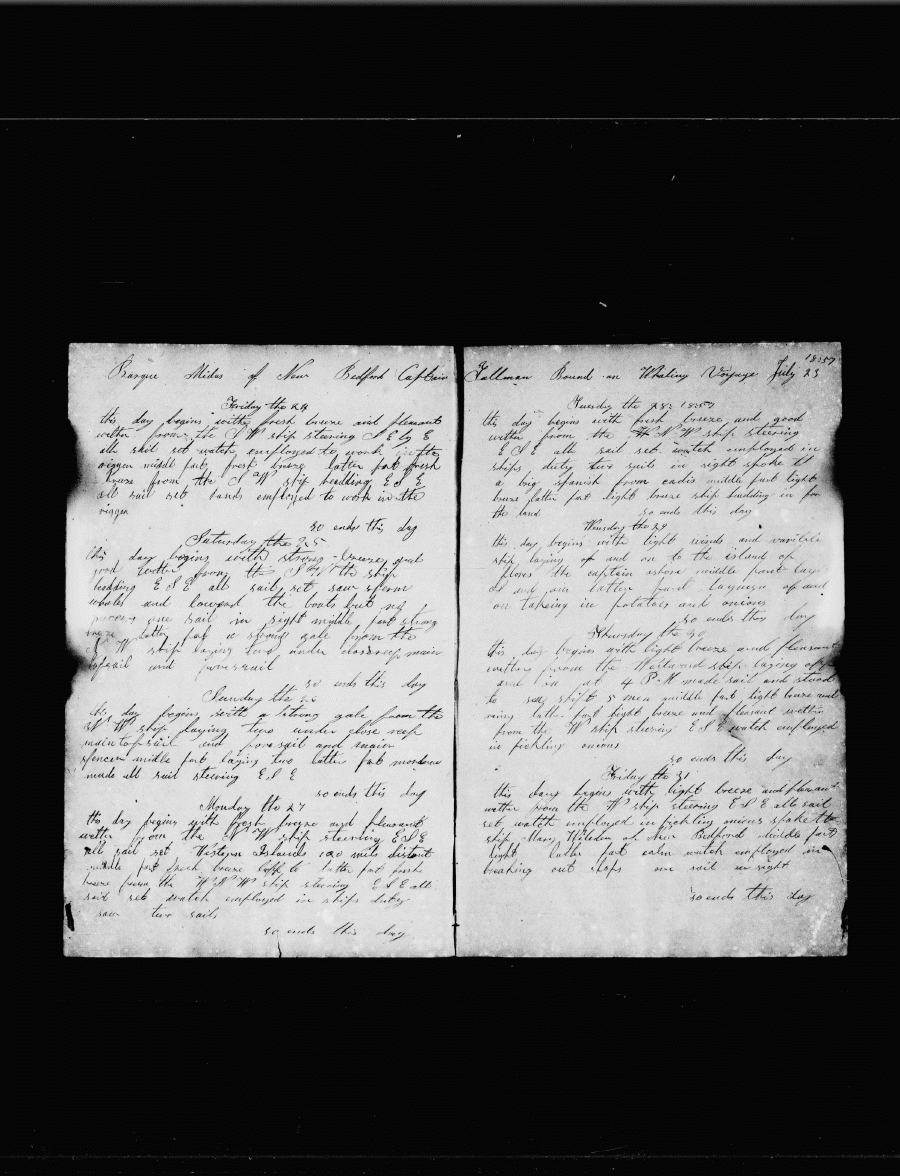 Barque Midas of New Bedford Captain
Friday the 24
this day begins with fresh breeze and pleasant
wether from the S W ship steering S E by E
all sail set watch employed to work in the
riggen middle part fresh breeze latter part fresh
breeze from the S W ship heading E S E
all sail set hands employed to work in the
riggen
so ends this day
Saturday the 25
this day begins with strong breeze and
good wether from the S W the ship
heading E S E all sail set saw sperm
whales and lowerd the boats but no
one sail in sight middle part strong
latter part a strong gale from the
W ship laying two under closereep main
topsail and foresail
so ends this day
Sunday the
this day begins with a strong gale from the
W ship laying two under close reep
maintopsail and foresail and main
spencer middle part laying two latter part
made all sail steering E S E
so ends this day
Monday the 27
the day begins with fresh breeze and pleasant
wether from the ship steering E S E
all sail set Western Islands 120 miles distant
middle part fresh breeze latter part fresh
breeze from the W N W ship steering E S E all
sail set watch employed in ships duty
saw two sails
so ends this day
1857
Tallman Bound on Whaling Voyage July 23
Tuesday the 28 1857
this day begins with fresh breeze and good
wether from the W N W ship steering
E S E all sail set watch employed in
ships duty two sails in sight spoke
a big spanish from cadis middle part light
breeze latter part light breeze ship heading in for
the land so ends this day
Wensday the 29
this day begins with light winds and varible
ship laying of and on to the island of
flores the captain ashore middle part
of and on latter part layingn of and
on taking in potatoes and onions
so ends this day
Thursday the 30
this day begins with light breeze and pleasant
wether from the Westward ship laying of
and in at 4 P M made sail and stood
to sea shipt 5 men middle part light breeze and
rainy latter part light breeze and pleasant wether
from the W ship steering E S E watch employed
in fichling onions
so ends this day
Friday the 31
this day begins with light breeze and pleasant
wether from the W ship steering E S E all sail
set watch employed in fichling onions spoke the
ship Mary Wilden of New Bedford middle part
light latter part calm watch employed in
breaking out shops one sail in sight
so ends this day